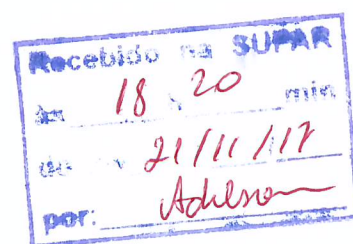 Recebido na SUPAR
às 18 , 20 min
de 21/11/17
por: Adilson